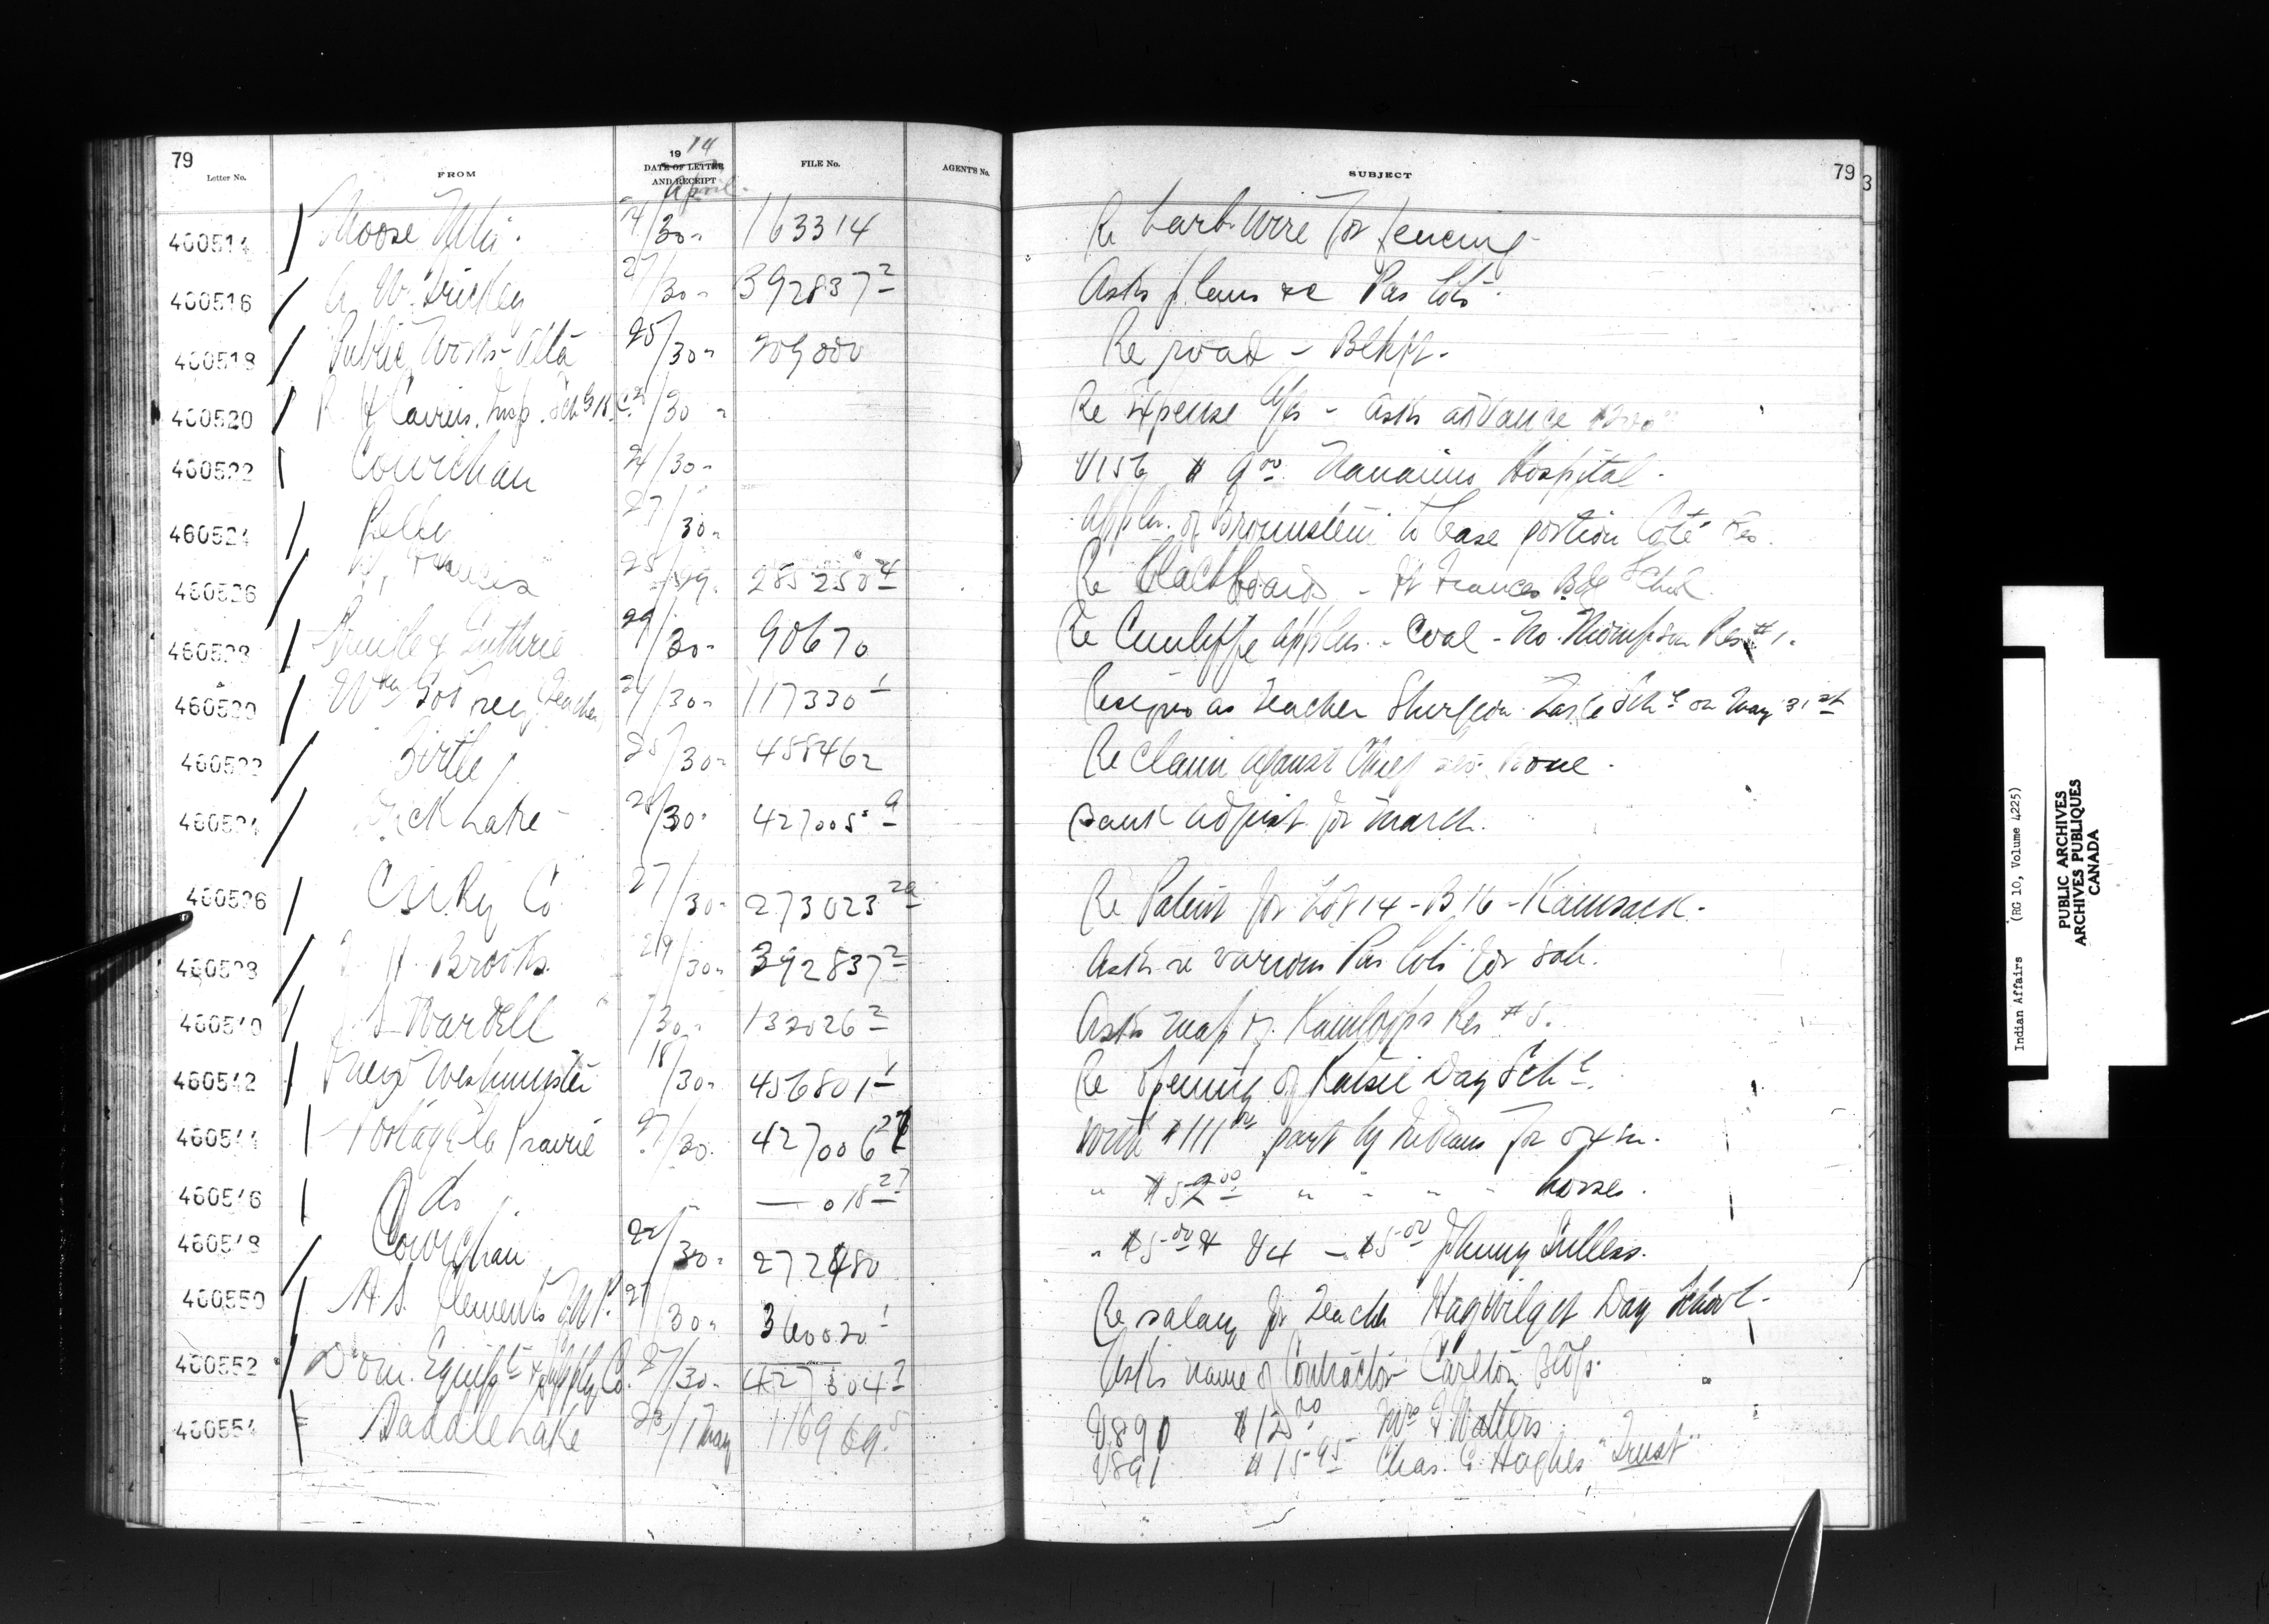 79
Letter No.
FROM
19 14
DATE OF LETTER
AND RECEIPT
April
FILE No.
AGENT'S No.
SUBJECT
79
3
460514 Moose Mtn. 24/30 163314 Re barb wire for fencing
460516 A. W. 27/30 392837 2 Asks plans re Pas lots.
460518 Public Works Alta 25/30 Re road - Blkft.
460520 R H Cairns, Insp. Schls B.C. /30 Re Expense a/cs - asks advance
460522 Cowichan 24/30 V156 $9.00 Nanaimo Hospital.
460524 Pelly 27/30 Appln. of Brownstein to lease portion Coté Res.
460526 Ft Frances 25/29 285250 4 Re Blackboards - Ft Frances Bdg School
460528 & Guthrie 29/30 90670 Re Cunliffe appln. - Coal - No. Thompson Res #1.
460530 Godfrey Teacher 24/30 117330 1 Resigns as teacher Sturgeon Lake Schl on May 31st
460532 Birtle 25/30 458462 Re claim against Chief
460534 Duck Lake 28/30 427005 9 Bank adjust for March.
460536 C N Ry Co 27/30 273023 2a Re Patent for Lot 14 - B 16 - Kamsack.
460538 H. Brooks 29/30 392837 2 Asks re various Pas lots for sale.
460540 J. S. Wardell /30 132026 2 Asks map of Kamloops Res #5.
460542 New Westminster 18/30 456801 1 Re opening of Katsie Day Schl.
460544 Portage la Prairie 27/30 427006 With $111.00 part by Indians for oxen.
460546 Do — 018 27 " $52.00 " " " " horses.
460548 Cowichan 22/30 272480 " $5.00 & V4 - $5.00 Johnny
460550 H. S. Clements M.P. 27/30 360020 1 Re salary for teacher Hagwilget Day School.
460552 Dom. Equipt & Supply Co. 27/30 427804 3 Asks name of Contractor Carlton Bldgs.
460554 Saddle Lake 23/1 May 116969 5 V890 $12.00 Mrs F Walters
V891 $15.95 Chas. G. Hughes "Trust"
Indian Affairs (RG 10, Volume 4225)
PUBLIC ARCHIVES
ARCHIVES PUBLIQUES
CANADA